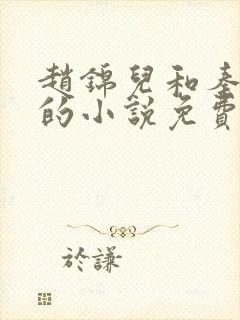 趙錦兒和秦
的小說免費
於謙